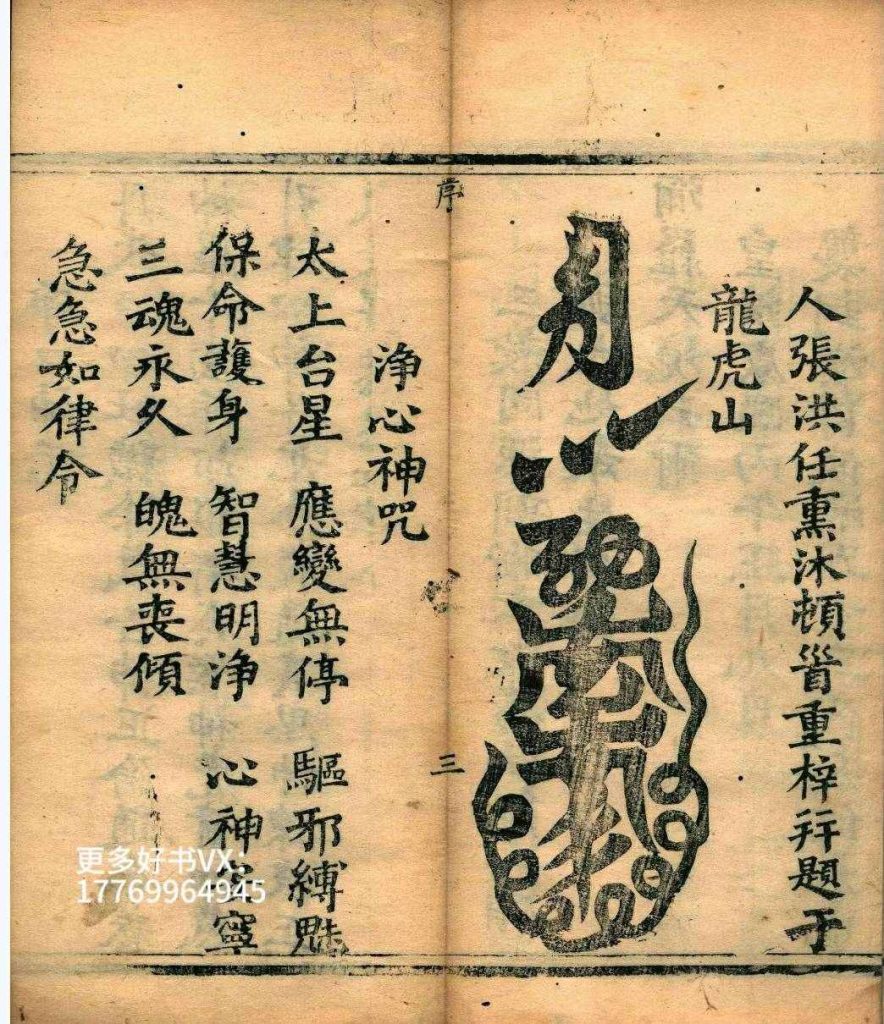 人張洪任熏沐頓首重梓並題于
龍虎山
序
三
淨心神咒
太上台星 應變無停 驅邪縛魅
保命護身 智慧明淨 心神安寧
三魂永久 魄無喪傾
急急如律令
更多好书VX:
17769964945